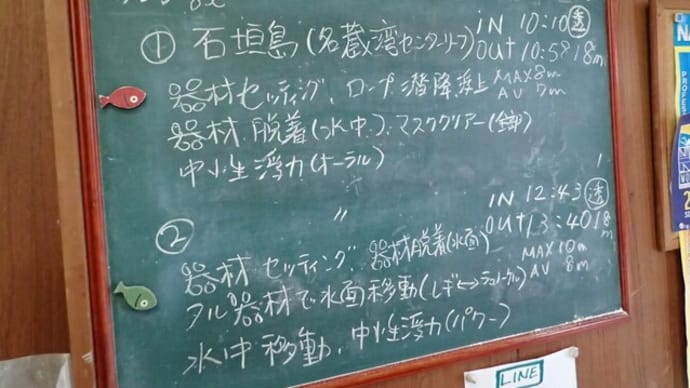 ① 石垣島(名蔵湾センターリーフ) IN 10:10 透
OUT 10:59 18m
器材セッティング、ロープ潜降浮上 MAX 8m
AV 5m
器材脱着(水中)、マスククリアー(全部)
中性浮力(オーラル)
② 〃 IN 12:43 透
OUT 13:40 18m
器材セッティング、器材脱着(水面) MAX 10m
AV 8m
フル器材で水面移動(レギ⟷シュノーケル)
水中移動、中性浮力(パワー)
LINE
NA
PROFES